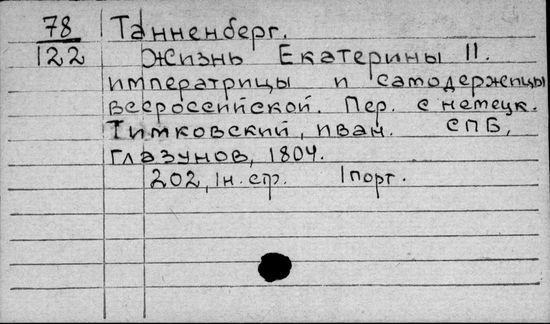 78 Танненберг.
122 Жизнь Екатерины II.
императрицы и самодержицы
всероссийской. Пер. с немецк.
Тимковский, иван. СПБ,
Глазунов, 1804.
202, 1н. стр. 1 порт.